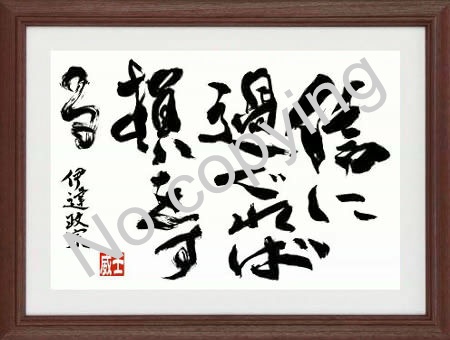 信に
過ぐれば
損をす
る
伊達政宗
No copying